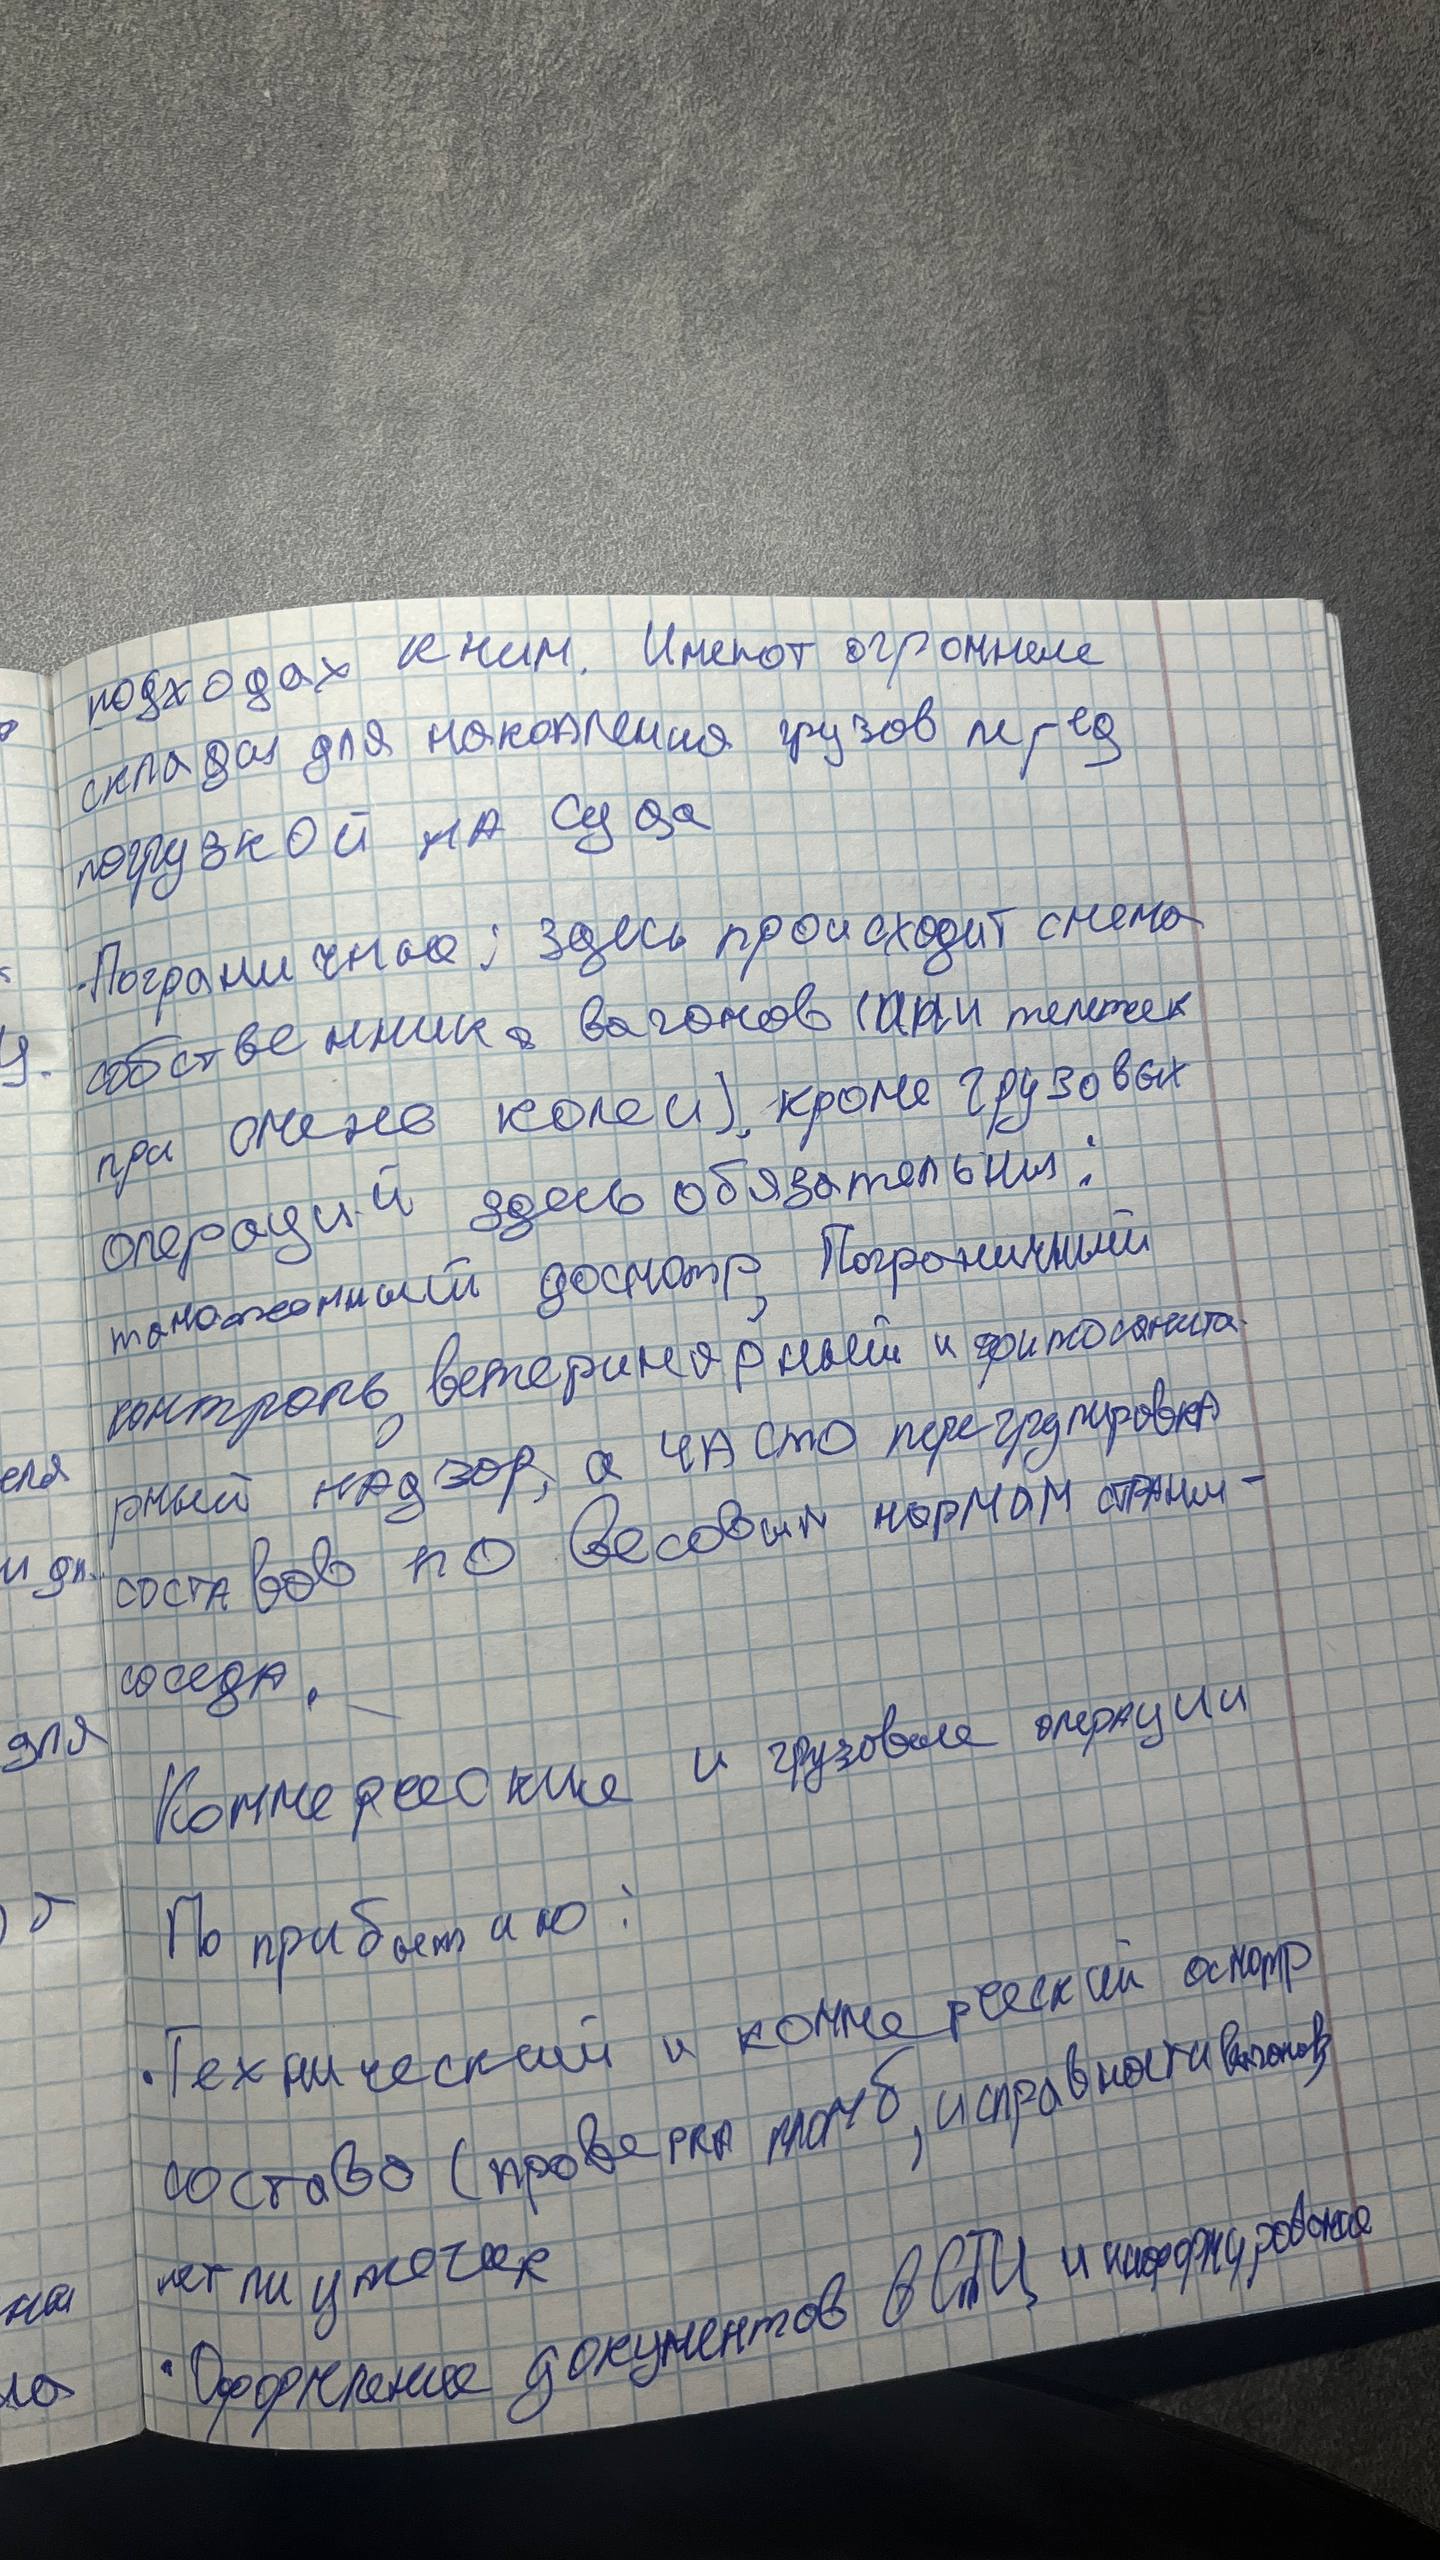 подходах к ним. Имеют огромные
склады для накопления грузов перед
погрузкой на суда
·Пограничные; здесь происходит смена
собственника вагонов (или тележек
при смене колеи), кроме грузовых
операций здесь обязательны:
таможенный досмотр, Пограничный
контроль, ветеринарный и фитосанита-
рный надзор, а часто перегруппировка
составов по весовым нормам страны-
соседа.
Коммерческие и грузовые операции
По прибытию:
·Технический и коммерческий осмотр
состава (проверка пломб, исправности вагонов
нет ли утечек
·Оформление документов в СТЦ и информирование
у.
еля
и дл.
для
ны
ло